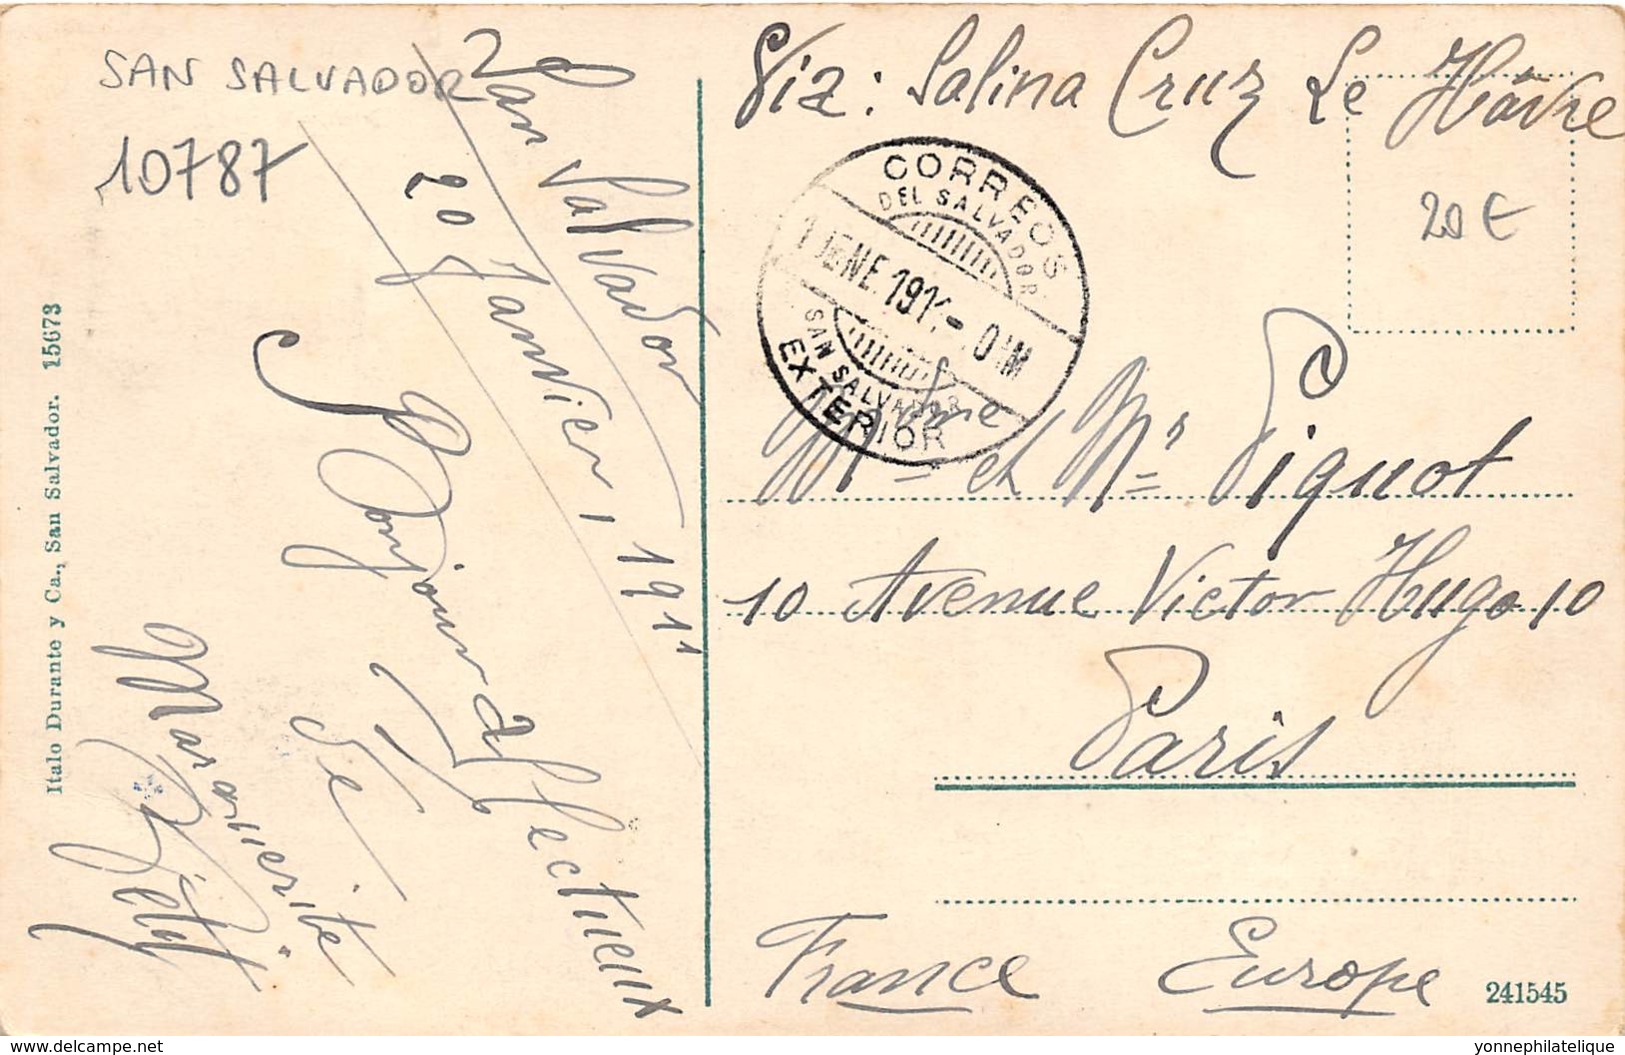 SAN SALVADOR
10787
San Salvador
20 Janvier, 1911
Bonjour affectueux
de
Marguerite
Italo Durante y Ca., San Salvador. 15673
Via: Salina Cruz Le Hâvre
20 €
CORREOS
DEL SALVADOR
ENE 191
SAN SALVADOR
EXTERIOR
Mme et Mr Piquot
10 Avenue Victor Hugo 10
Paris
France Europe
241545
www.delcampe.net
yonnephilatelique